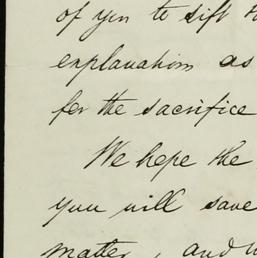 of you to sift
explanation as
for the sacrifice
We hope the
you will save
matter, and